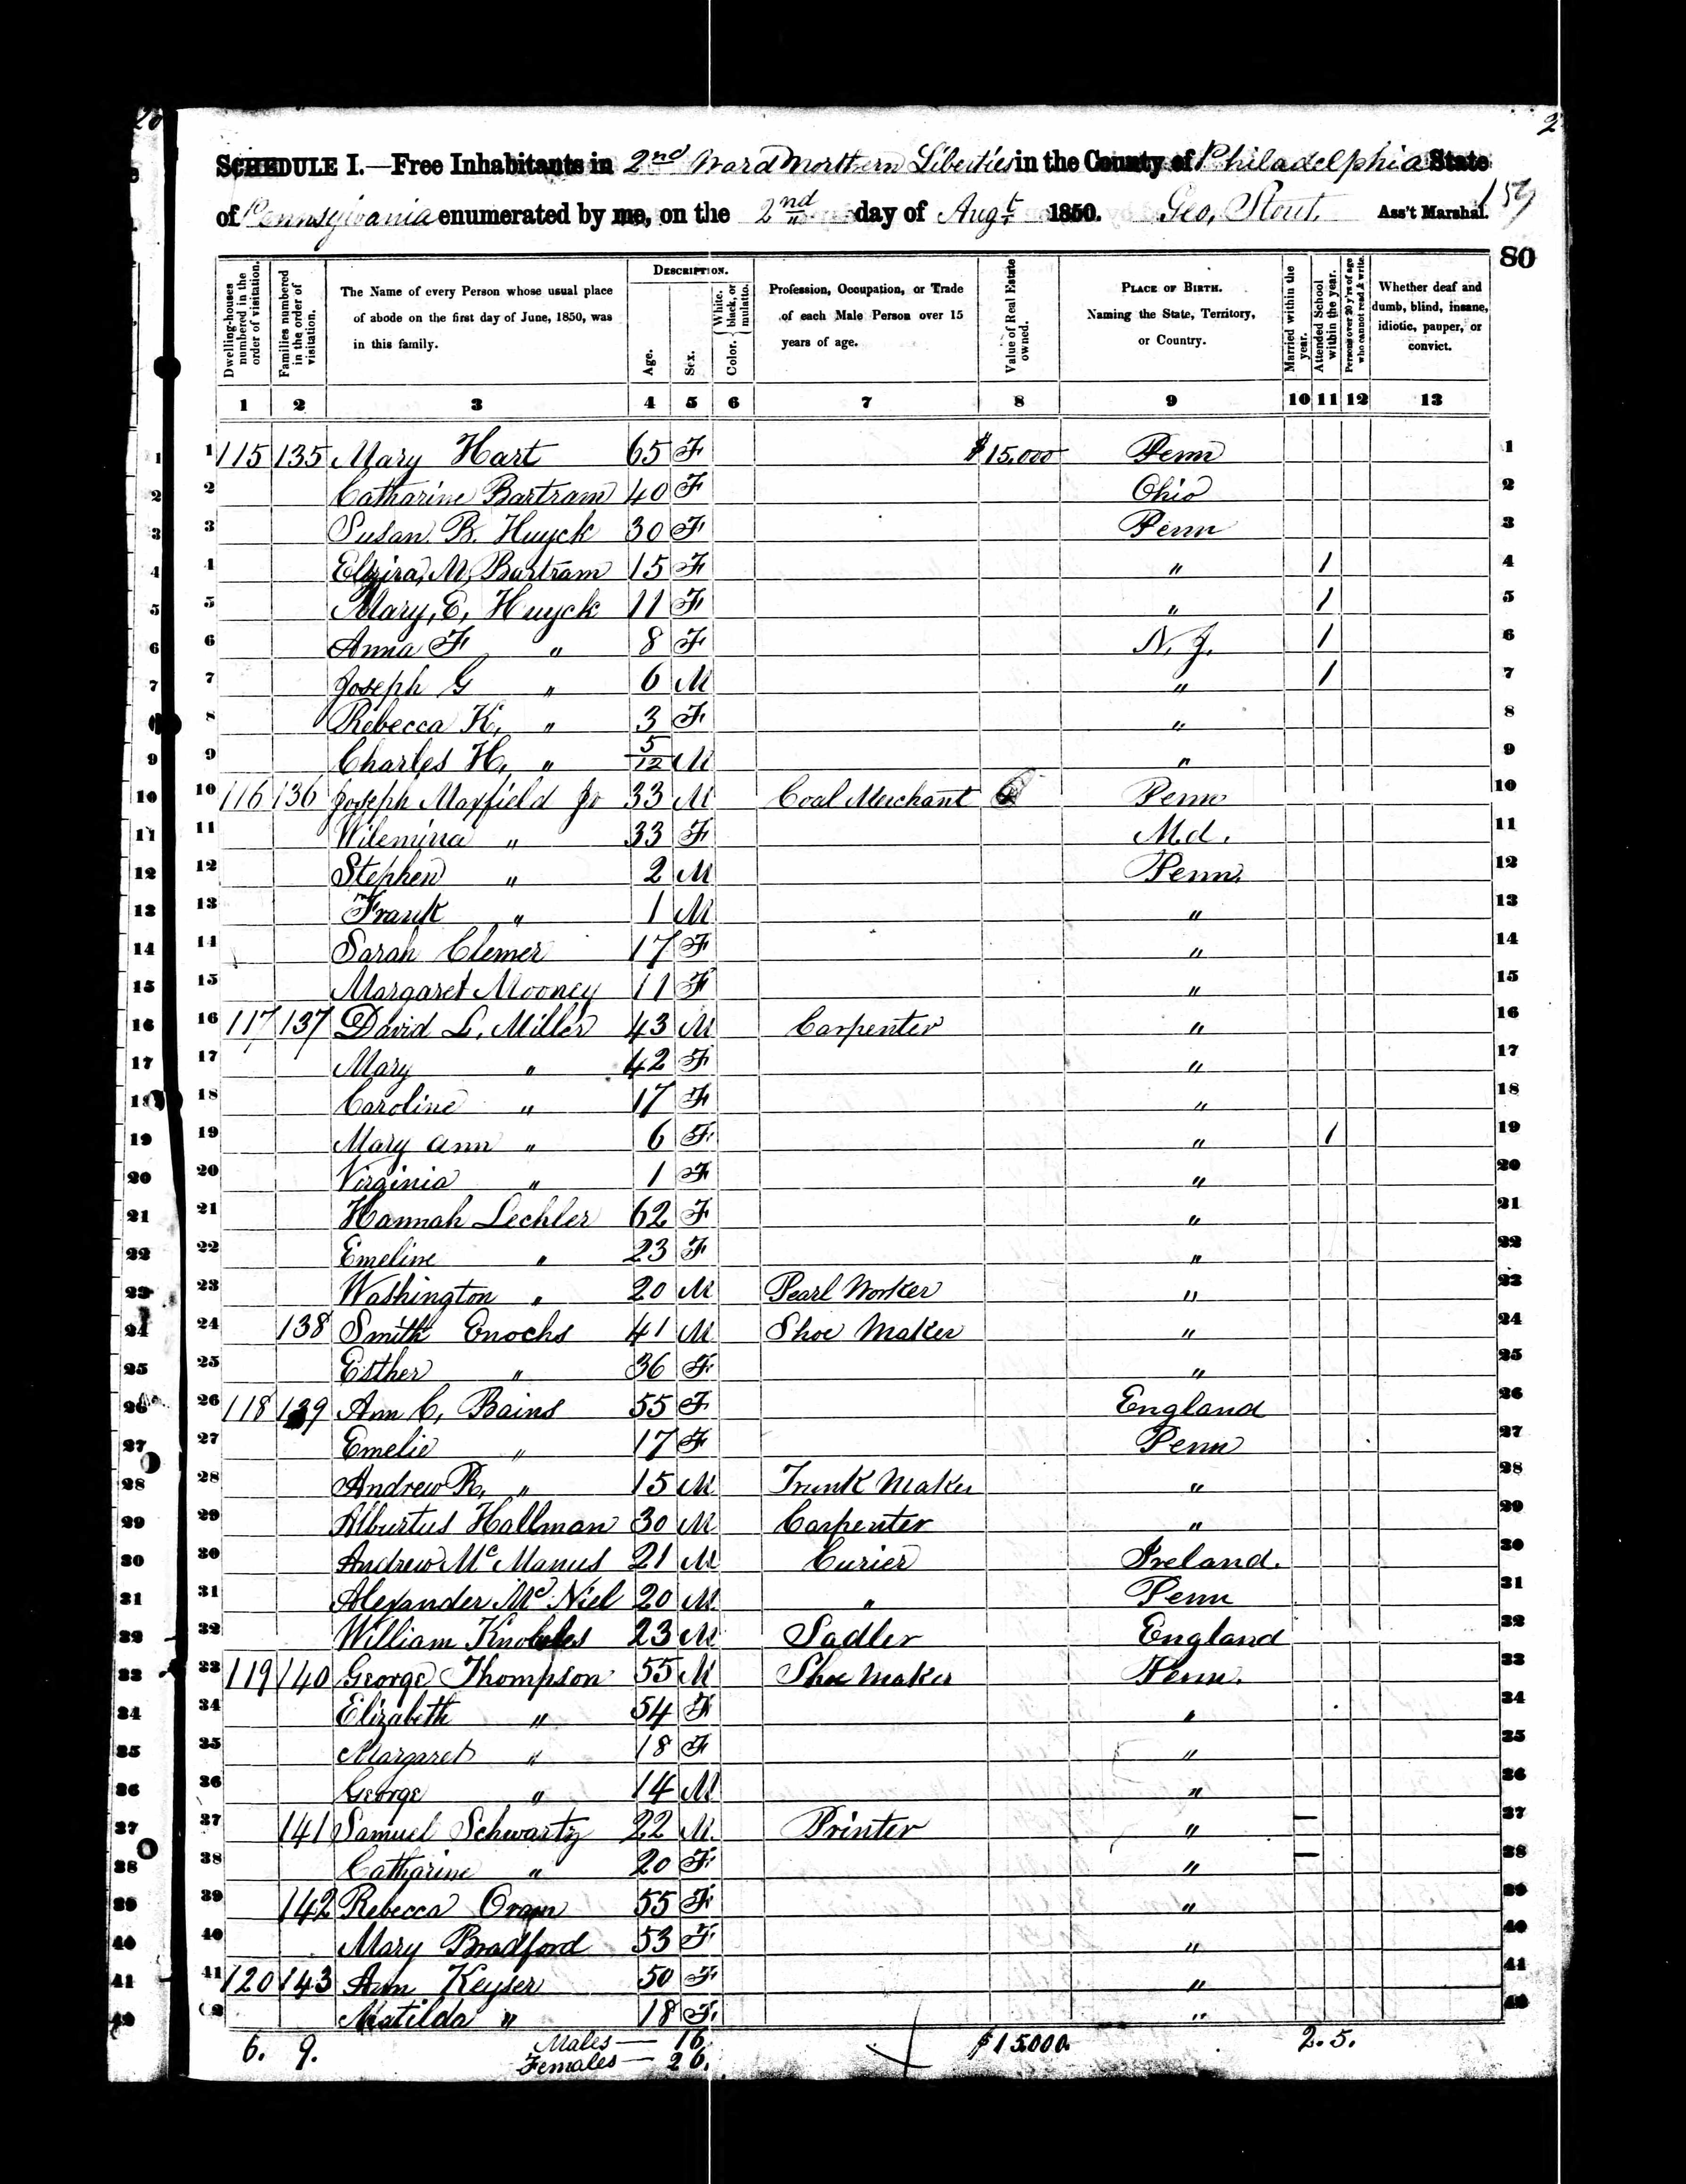 20
2
SCHEDULE I.—Free Inhabitants in 2nd Ward Northern Liberties in the County of Philadelphia State
of Pennsylvania enumerated by me, on the 2nd day of Augt 1850. Geo, Stout. Ass't Marshal. 159
80
Dwelling-houses numbered in the order of visitation.
Families numbered in the order of visitation.
The Name of every Person whose usual place of abode on the first day of June, 1850, was in this family.
DESCRIPTION.
Age.
Sex.
Color. { White, black, or mulatto.
Profession, Occupation, or Trade of each Male Person over 15 years of age.
Value of Real Estate owned.
PLACE OF BIRTH. Naming the State, Territory, or Country.
Married within the year.
Attended School within the year.
Persons over 20 y'rs of age who cannot read & write.
Whether deaf and dumb, blind, insane, idiotic, pauper, or convict.
1 2 3 4 5 6 7 8 9 10 11 12 13
1 1 115 135 Mary Hart 65 F $15.000 Penn 1
2 2 Catharine Bartram 40 F Ohio 2
3 3 Susan B. Huyck 30 F Penn 3
4 4 M, Bartram 15 F " 1 4
5 5 Mary, E, Huyck 11 F " 1 5
6 6 Anna F " 8 F N. J. 1 6
7 7 Joseph G " 6 M " 1 7
8 Rebecca K, " 3 F " 8
9 9 Charles H, " 5/12 M " 9
10 10 116 136 Joseph Maxfield Jr 33 M Coal Merchant Penn 10
11 11 Wilemina " 33 F Md. 11
12 12 Stephen " 2 M Penn. 12
13 13 Frank " 1 M " 13
14 14 Sarah Clemer 17 F " 14
15 15 Margaret Mooney 11 F " 15
16 16 117 137 David L. Miller 43 M Carpenter " 16
17 17 Mary " 42 F " 17
18 18 Caroline " 17 F " 18
19 19 Mary Ann " 6 F " 1 19
20 20 Virginia " 1 F " 20
21 21 Hannah Lechler 62 F " 21
22 22 Emeline " 23 F " 22
23 23 Washington " 20 M Pearl Worker " 23
24 24 138 Smith Enochs 41 M Shoe Maker " 24
25 25 Esther " 36 F " 25
26 26 118 139 Ann C, Bains 55 F England 26
27 27 Emelie " 17 F Penn 27
28 28 Andrew R, " 15 M Trunk Maker " 28
29 29 Alburtus Hallman 30 M Carpenter " 29
30 30 Andrew Mc Manus 21 M Curier Ireland. 30
31 31 Alexander Mc Niel 20 M " Penn 31
32 32 William 23 M Sadler England 32
33 33 119 140 George Thompson 55 M Shoe Maker Penn. 33
34 34 Elizabeth " 54 F " 34
35 35 Margaret " 18 F " 35
36 36 George " 14 M " 36
37 37 141 Samuel Schwartz 22 M Printer " — 37
38 38 Catharine " 20 F " — 38
39 39 142 Rebecca Oram 55 F " 39
40 40 Mary Bradford 53 F " 40
41 41 120 143 Ann Keyser 50 F " 41
42 42 Matilda " 18 F " 42
6. 9. Males — 16. $15000. 2. 5.
Females — 26.